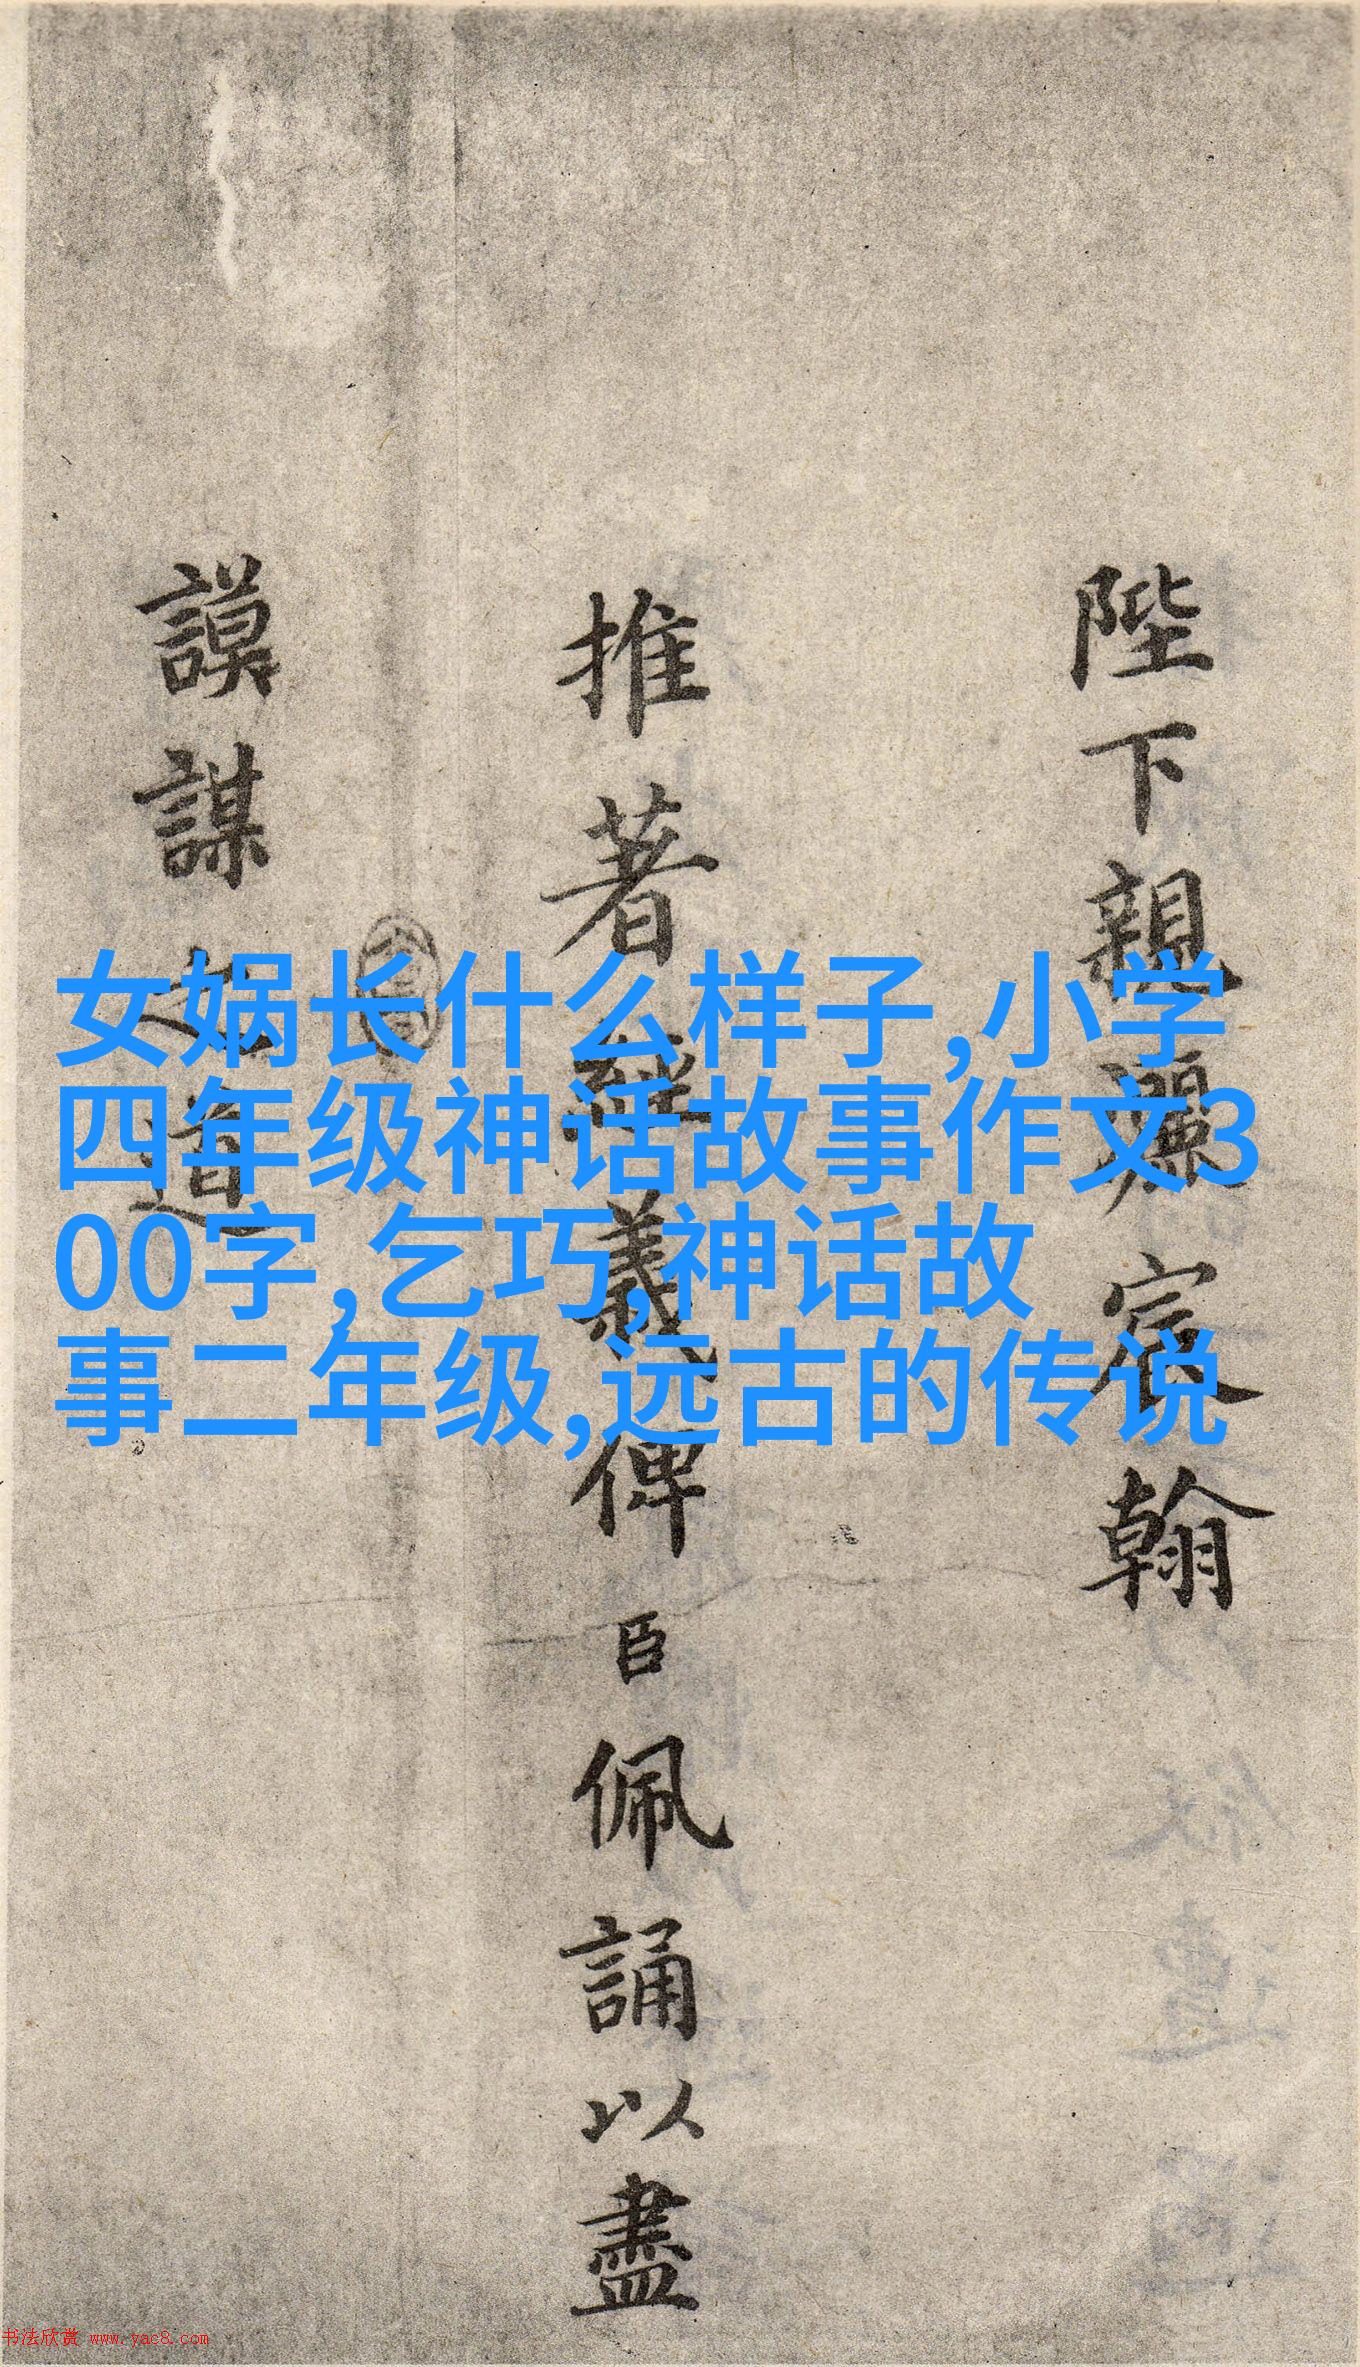 陛下親灑宸翰
推著經義俾臣佩誦以盡
謨謀之道
女娲长什么样子,小学
四年级神话故事作文3
00字,乞巧,神话故
事二年级,远古的传说
书法欣赏 www.yac8.com